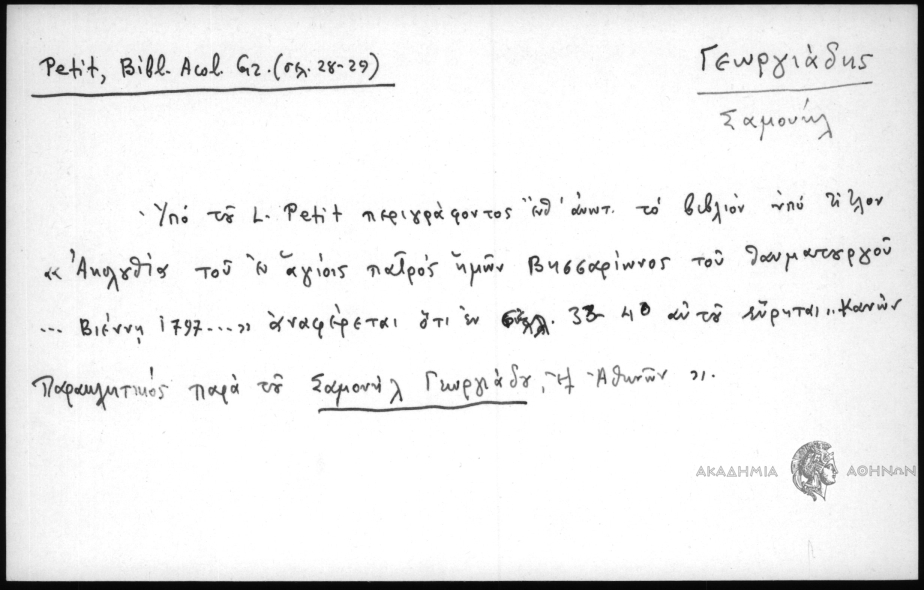 Petit, Bibl. Acol. Gr. (σελ. 28-29)
Γεωργιάδης
Σαμουήλ
Ὑπό τοῦ L. Petit περιγράφοντος ἔνθ' ἀνωτ. τό βιβλίον ὑπό τίτλον
«Ἀκολυθία τοῦ ἐν ἁγίοις πατρός ἡμῶν Βησσαρίωνος τοῦ θαυματουργοῦ
... Βιέννη 1797...» ἀναφέρεται ὅτι ἐν σελ. 33-40 αὐτοῦ εὕρηται „Κανών
Παρακλητικός παρά τοῦ Σαμουήλ Γεωργιάδου, ἐξ Ἀθηνῶν».
ΑΚΑΔΗΜΙΑ ΑΘΗΝΩΝ